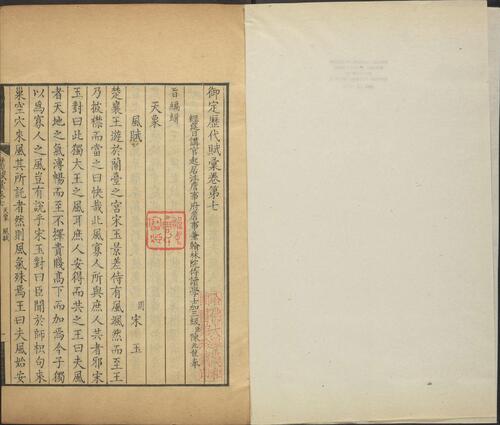 御定歷代賦彙卷第七
經筵日講官起居注詹事府詹事兼翰林院侍讀學士加三級臣陳元龍奉
旨編輯
天象
風賦
周 宋玉
楚襄王遊於蘭臺之宮宋玉景差侍有風颯然而至王
乃披襟而當之曰快哉此風寡人所與庶人共者邪宋
玉對曰此獨大王之風耳庶人安得而共之王曰夫風
者天地之氣溥暢而至不擇貴賤高下而加焉今子獨
以為寡人之風豈有說乎宋玉對曰臣聞於師枳句來
巢空穴來風其所託者然則風氣殊焉王曰夫風始安
天象 風賦